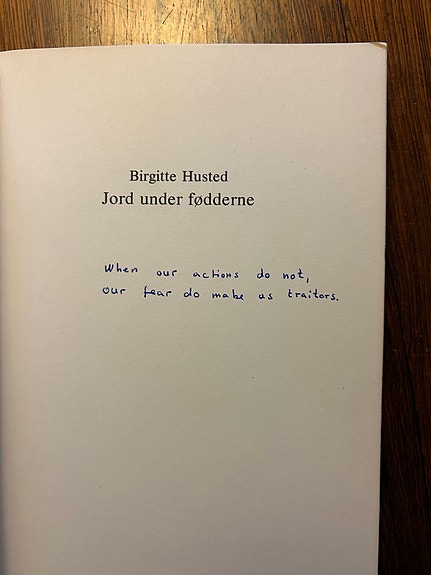 Birgitte Husted
Jord under fødderne
When our actions do not,
our fear do make us traitors.